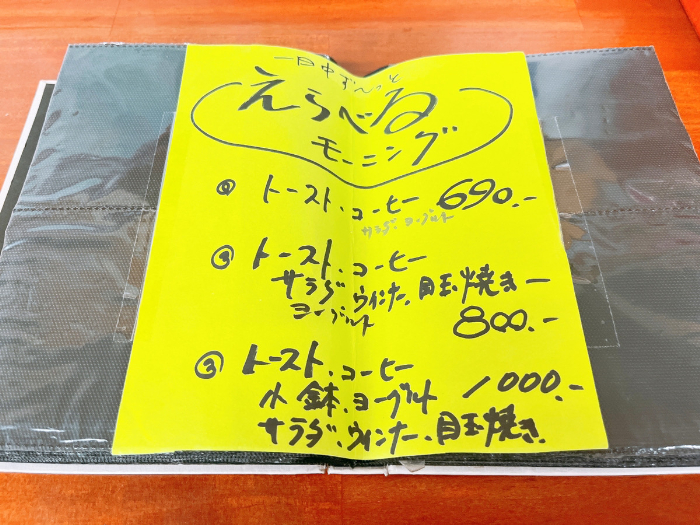 一日中ずんっと
えらべる
モーニング
① トースト、コーヒー 690.-
サラダ、ヨーグルト
② トースト、コーヒー
サラダ、ウィンナー、目玉焼き
ヨーグルト 800.-
③ トースト、コーヒー
小鉢、ヨーグルト 1000.-
サラダ、ウィンナー、目玉焼き